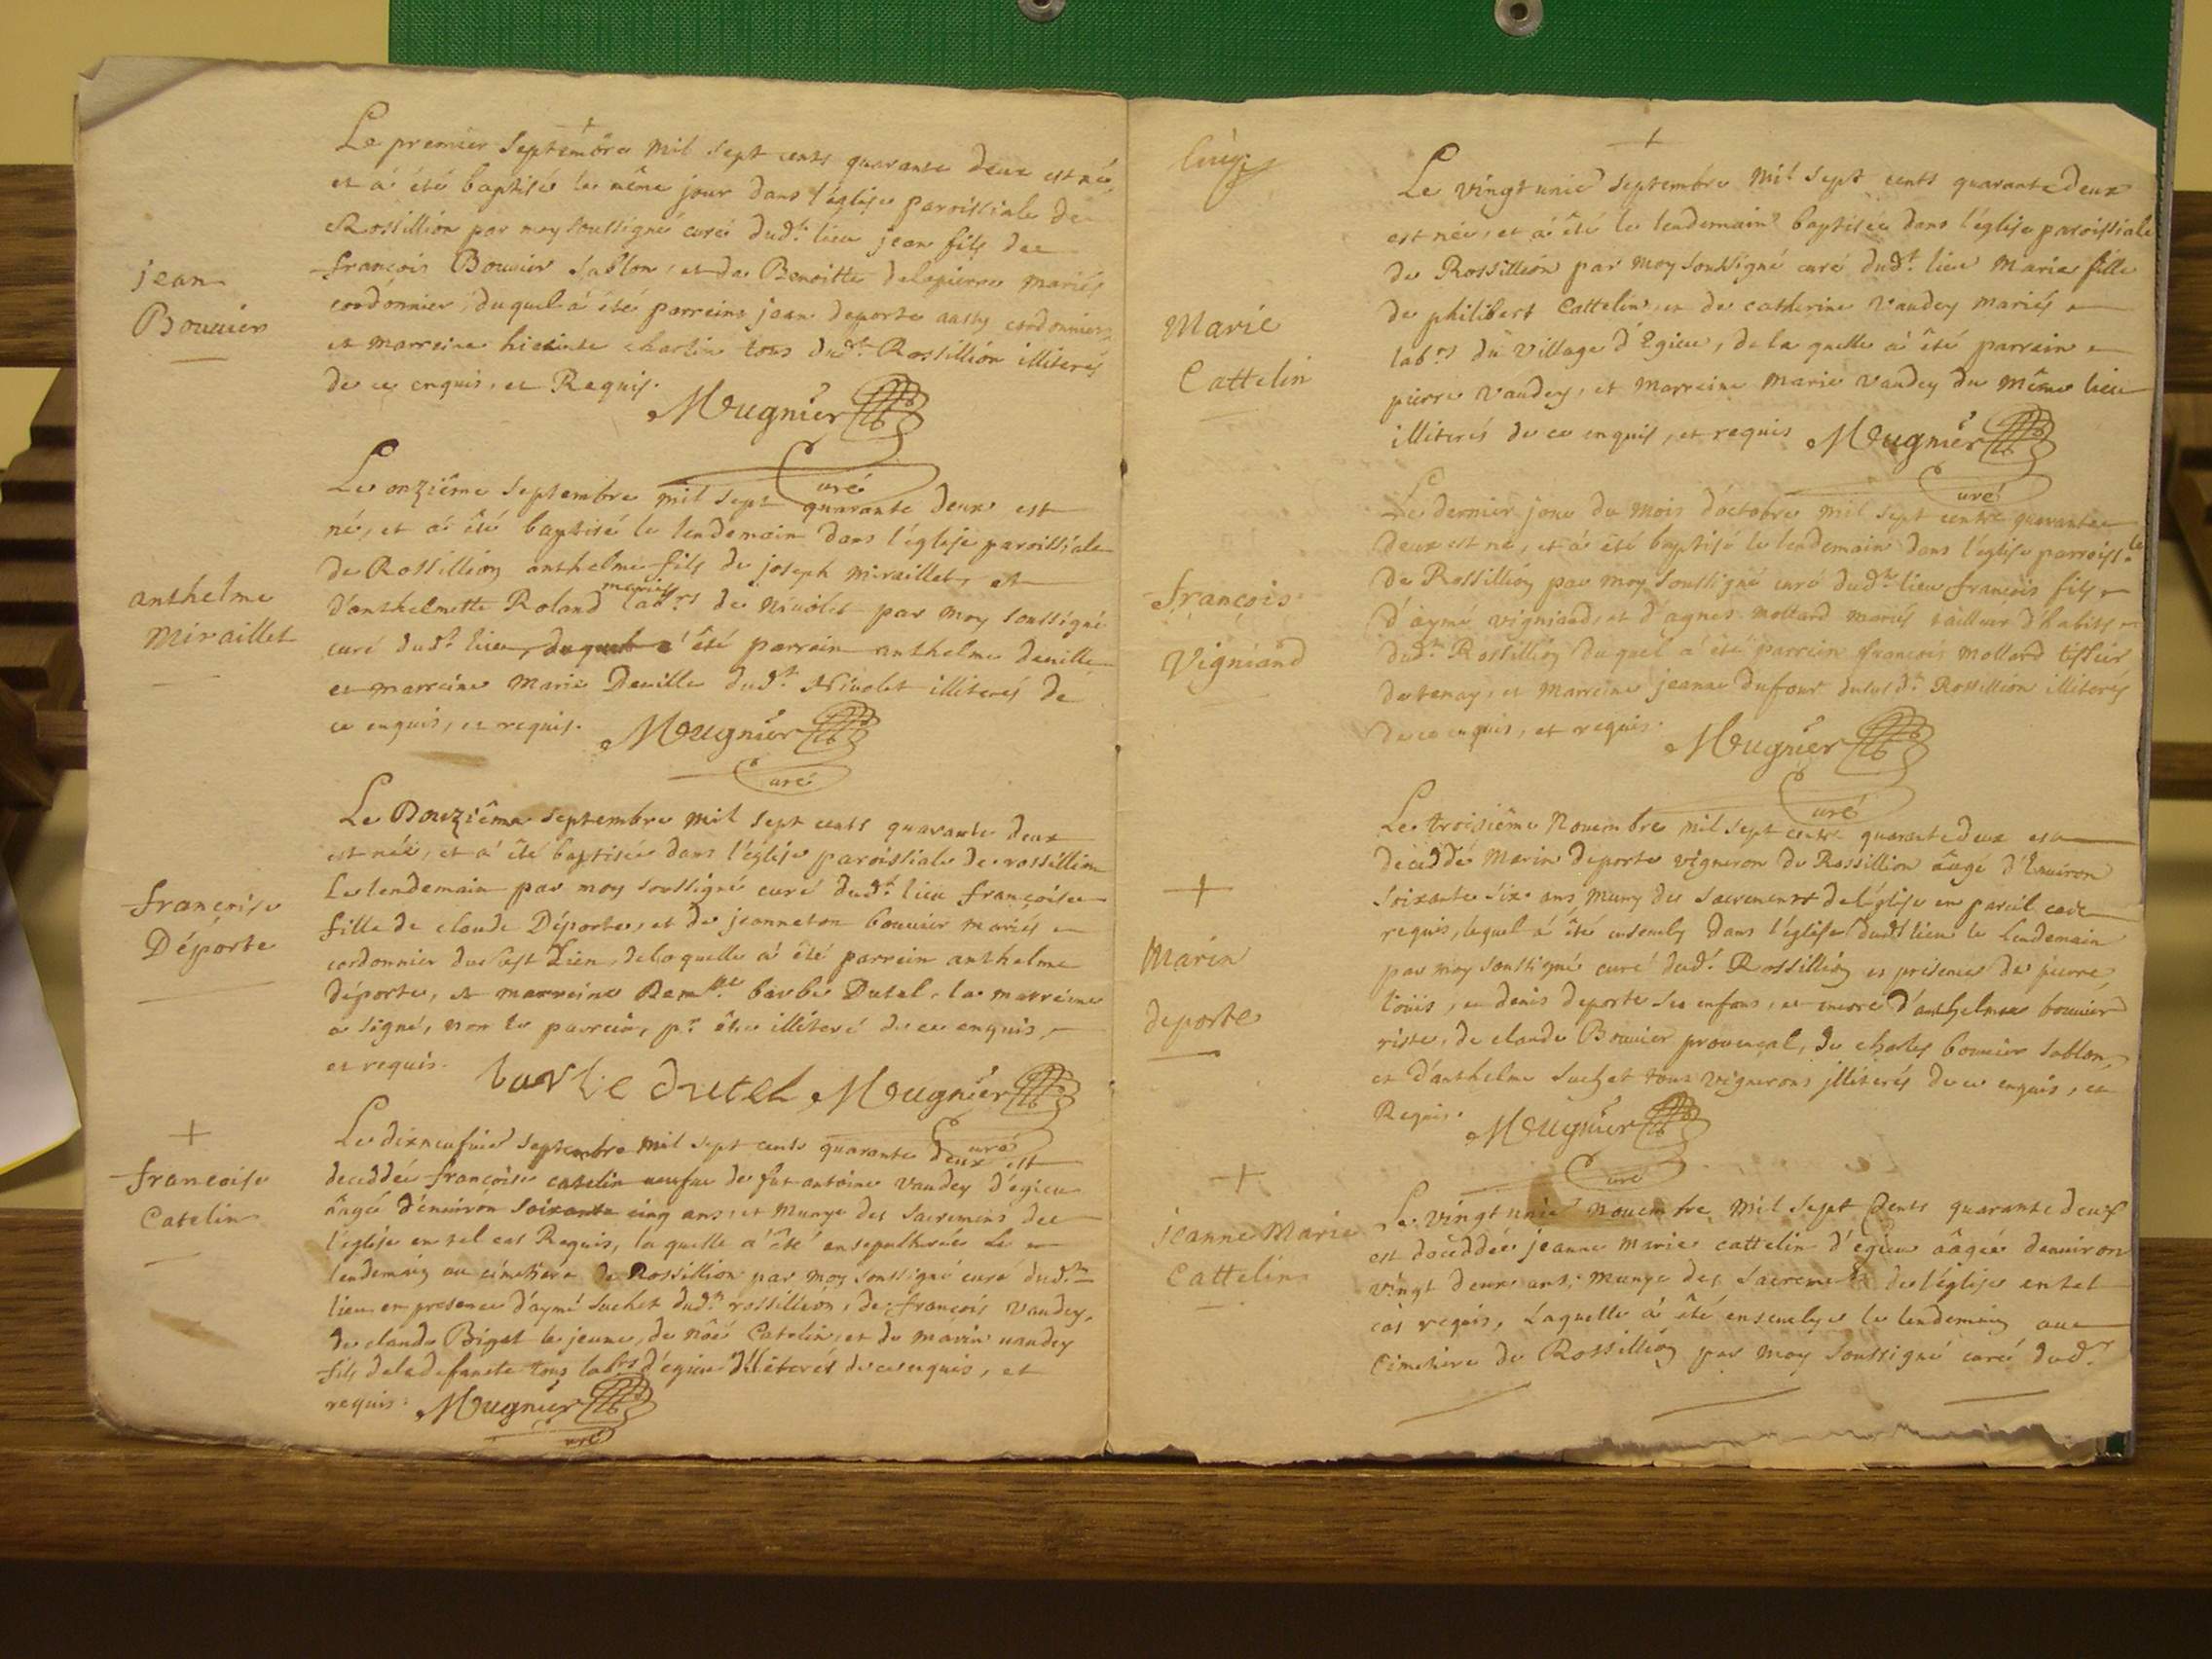 Le premier septembre mil sept cents quarante deux est né,
et a été baptisé le même jour dans l'église paroissiale de
Rossillion par moy soussigné curé dud.t lieu jean fils de
jean
Bouuier
françois Bouuier sablon, et de Benoitte delapierre mariés
cordonnier, duquel a été parrein jean deporte cordonnier,
et marreine charlin tous dud.t Rossillion illiterés
de ce enquis, et Requis.
Mugnier
Curé
Le onziême septembre mil sept quarante deux est
né, et a été baptisé le lendemain dans l'église paroissiale
anthelme
Miraillet
de Rossillion anthelme fils de joseph miraillet, et
mariés
d'anthelmette Roland lab.rs de Niuolet par moy soussigné
curé dud.t lieu, duquel a été parrein anthelme deuille
et marreine Marie Deuille dud.t Niuolet illiterés de
ce enquis, et requis. Mugnier
Curé
Le Douziême septembre mil sept cents quarante deux
est née, et a été baptisée dans l'église paroissiale de rossillion
françoise
Déporte
Le lendemain par moy soussigné curé dud.t lieu françoise
fille de claude Déporte, et de jeanneton bouuier mariés
cordonnier dud.t Lieu, de laquelle a été parrein anthelme
déporte, et marreine Dem.lle barbe Dutel, la marreine
a signé, non le parrein, p.r être illiteré de ce enquis,
et requis. barbe dutel Mugnier
Curé
+
françoise
Catelin
Le dixneufuie septembre mil sept cents quarante deux est
deceddée françoise catelin ueufue de fut antoine vaudey d'égieu
âagée d'enuirón soixante cinq ans, et Munye des sacremens de
l'église en tel cas Requis, laquelle a été ensepulturée Le
lendemain au cimetiere de Rossillion par moy soussigné curé dud.t
lieu en presence d'aymé suchet dud.t rossillión, de françois vaudey,
de claude Biget le jeune, de nöé Catelin, et de marin uaudey
fils de la defuncte tous lab.rs d'égieu illiterés de ce enquis, et
requis. Mugnier
Curé
+
Le vingt unie septembre mil sept cents quarante deux
est née, et a été le lendemain baptisée dans l'église paroissiale
de Rossillión par moy soussigné curé dud.t lieu Marie fille
Marie
Cattelin
de philibert Cattelin, et de catherine vaudey mariés
lab.rs du village d'Egieu, de la quelle a été parrein
pierre vaudey, et marreine marie vaudey du même lieu
illiterés de ce enquis, et requis Mugnier
Curé
Le dernier jour du mois d'octobre mil sept cents quarante
deux est né, et a été baptisé le lendemain dans l'église parroiss.le
françois
Vigniand
de Rossillion par moy soussigné curé dud.t lieu françois fils
d'aymé vigniand, et d'agnes mollard mariés tailleur d'habits
dud.t Rossillion duquel a été parrein françois mollard tissier
de tenay, et marreine jeanne dufour dud.t Rossillion illiterés
de ce enquis, et requis. Mugnier
Curé
Le troisiême Nouembre mil sept cents quarante deux est
+
Marin
deporte
deceddé Marin deporte vigneron de Rossillion âagé d'Enuiron
soixante six ans, muny des sacremens de l'église en pareil cas
requis, lequel a été enseuely dans l'église dud.t lieu le Lendemain
par moy soussigné curé dud.t Rossillion en présence de pierre,
loüis, et denis deporte ses enfans, et encore d'anthelme bouuier
riste, de claude Bouuier prouençal, de charles bouuier sablon,
et d'anthelme suchet tous vignerons illiterés de ce enquis, et
Requis. Mugnier
Curé
+
jeanne Marie
Cattelin
Le vingt unie nouembre mil sept Cents quarante deux
est deceddée jeanne marie cattelin d'égieu âagée denuiron
vingt deux ans, munye des sacremens de l'église en tel
cas requis, Laquelle a été enseuelye le lendemain au
Cimetiere de Rossillion par moy soussigné curé dud.t